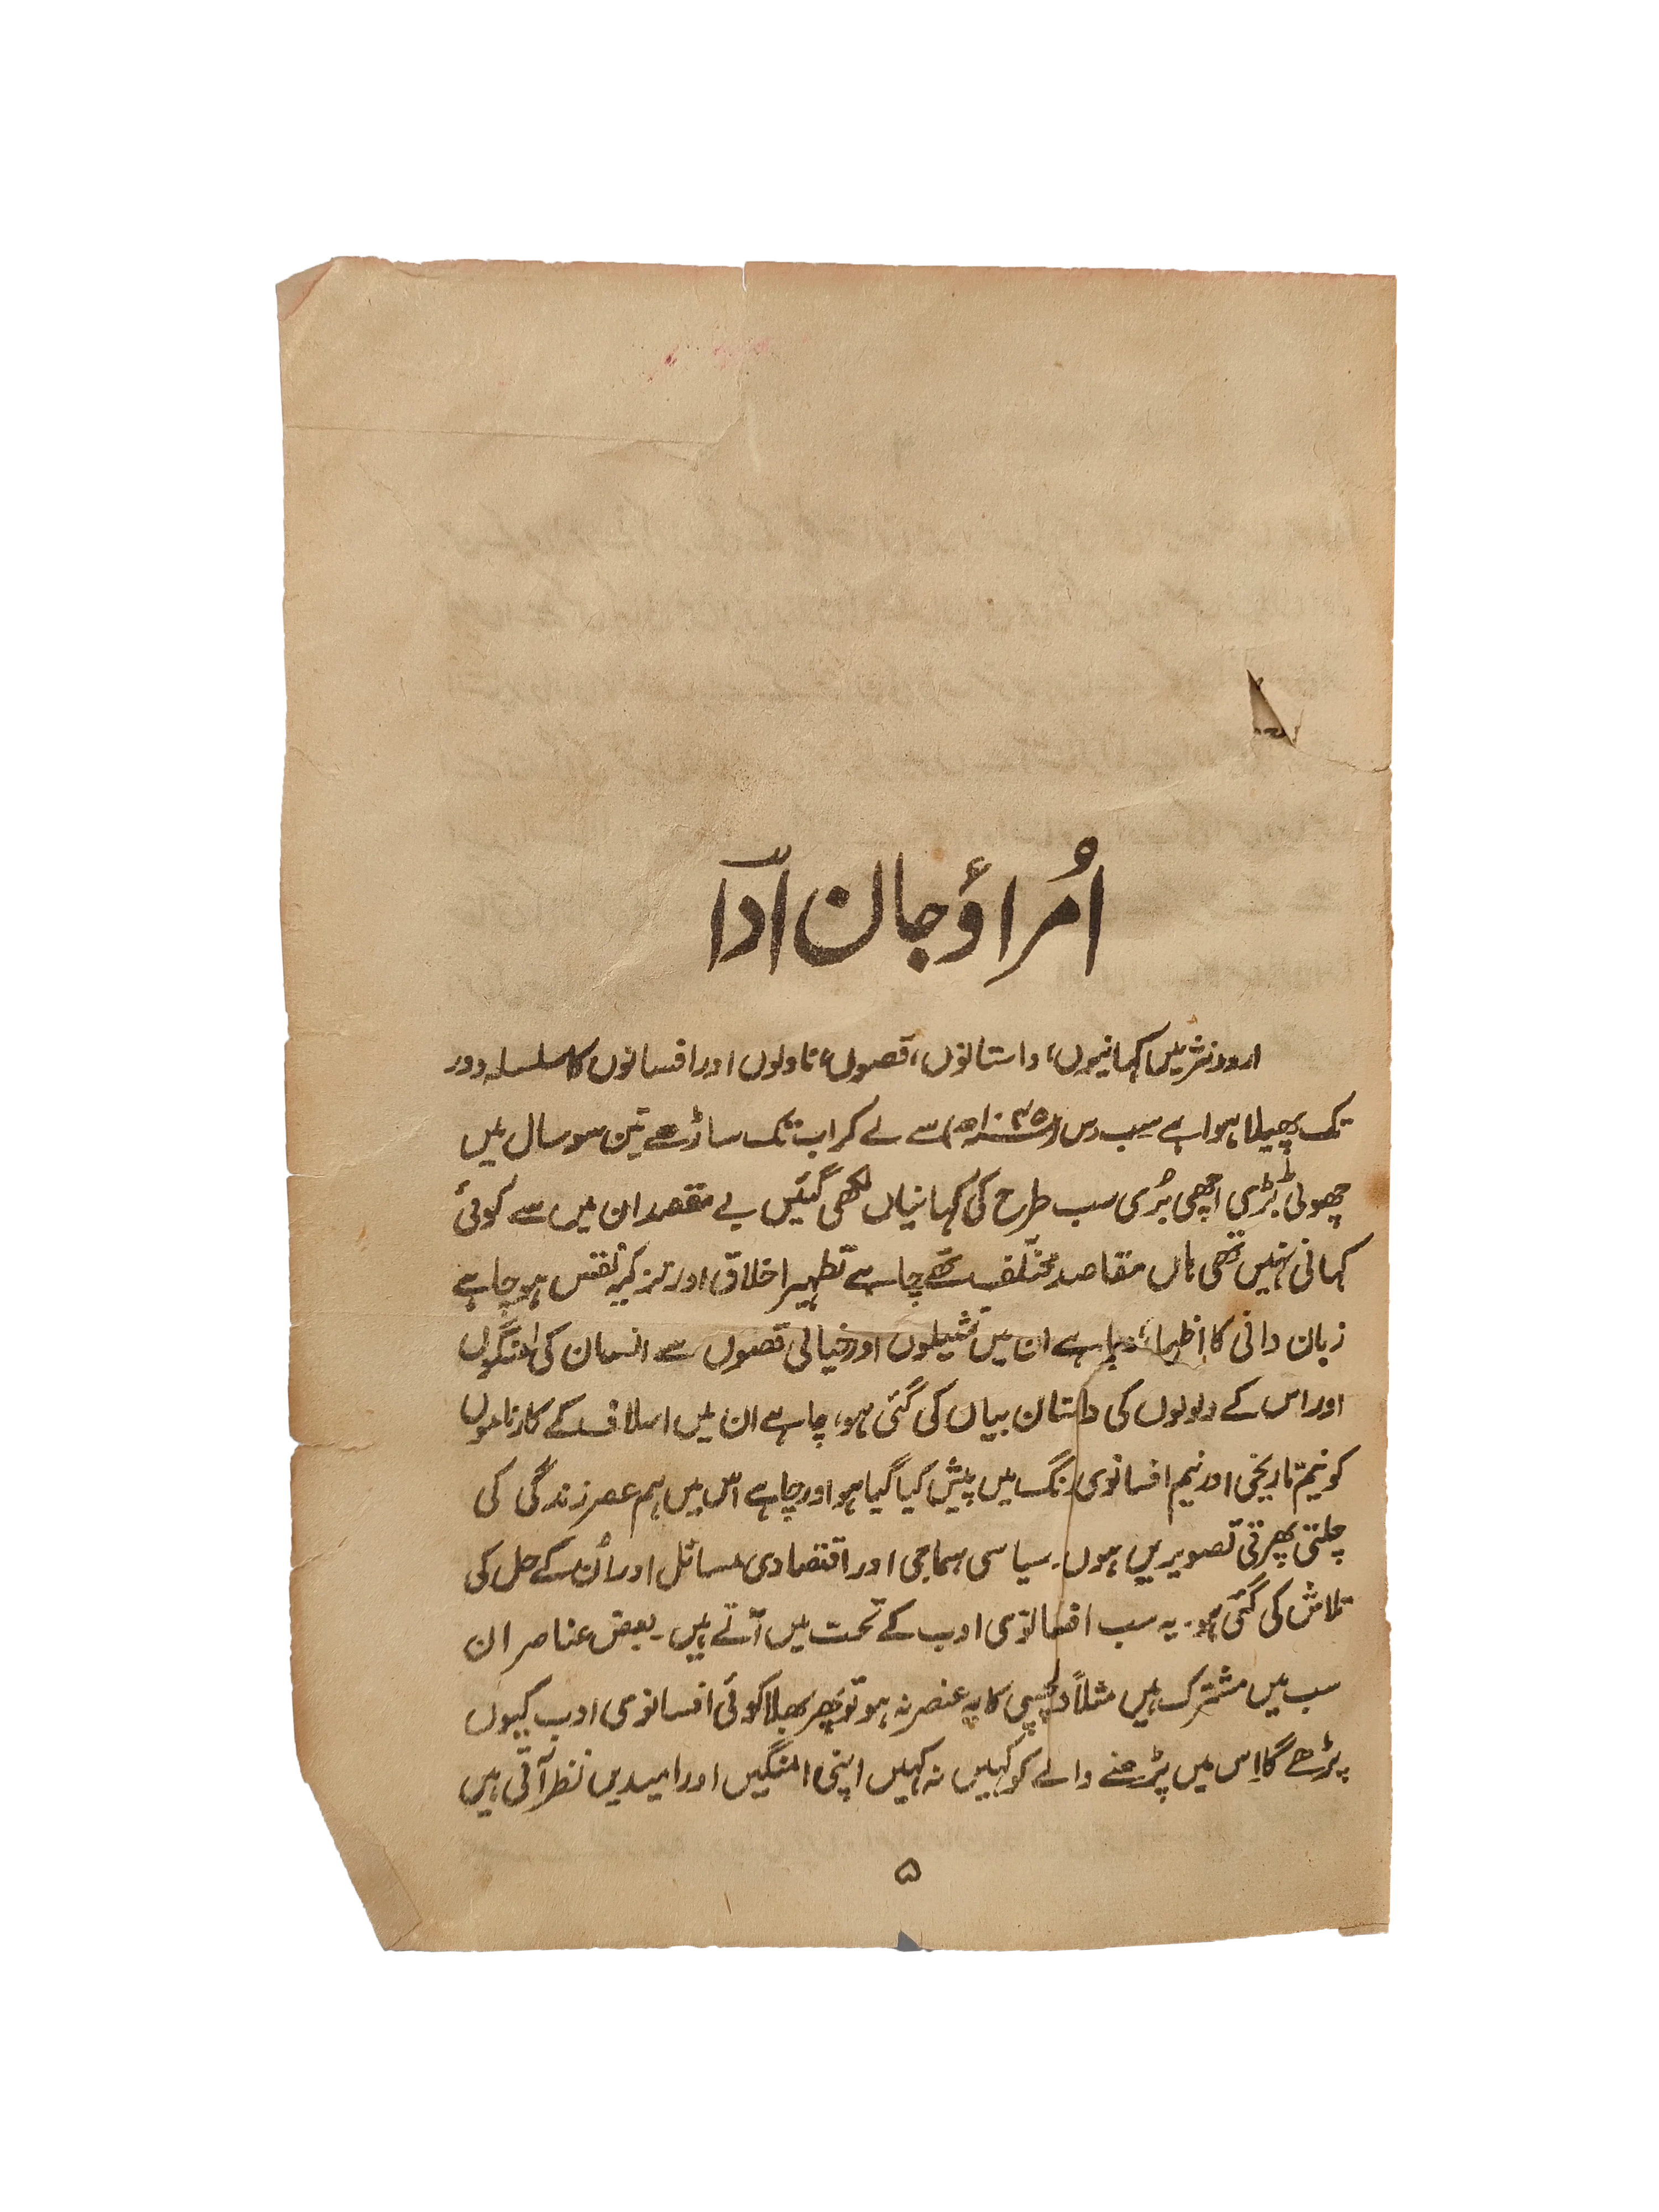 امراؤ جان اداؔ
اردو نثر میں کہانیوں، داستانوں، قصوں، ناولوں اور افسانوں کا سلسلہ دور
تک پھیلا ہوا ہے سب رس (۱۰۴۵ھ) سے لے کر اب تک ساڑھے تین سو سال میں
چھوٹی بڑی اچھی بُری سب طرح کی کہانیاں لکھی گئیں بے مقصد ان میں سے کوئی
کہانی نہیں تھی ہاں مقاصد مختلف تھے چاہے تطہیر اخلاق اور تزکیۂ نفس ہو چاہے
زبان دانی کا اظہار، چاہے ان میں تمثیلوں اور خیالی قصوں سے انسان کی امنگوں
اور اس کے ولولوں کی داستان بیاں کی گئی ہو، چاہے ان میں اسلاف کے کارناموں
کو نیم تاریخی اور نیم افسانوی رنگ میں پیش کیا گیا ہو اور چاہے اس میں ہم عصر زندگی کی
چلتی پھرتی تصویریں ہوں۔ سیاسی سماجی اور اقتصادی مسائل اور اُن کے حل کی
تلاش کی گئی ہو۔ یہ سب افسانوی ادب کے تحت میں آتے ہیں۔ بعض عناصر ان
سب میں مشترک ہیں مثلاً دلچسپی کا یہ عنصر نہ ہو تو پھر بھلا کوئی افسانوی ادب کیوں
پڑھے گا اِس میں پڑھنے والے کو کہیں نہ کہیں اپنی امنگیں اور امیدیں نظر آتی ہیں
۵